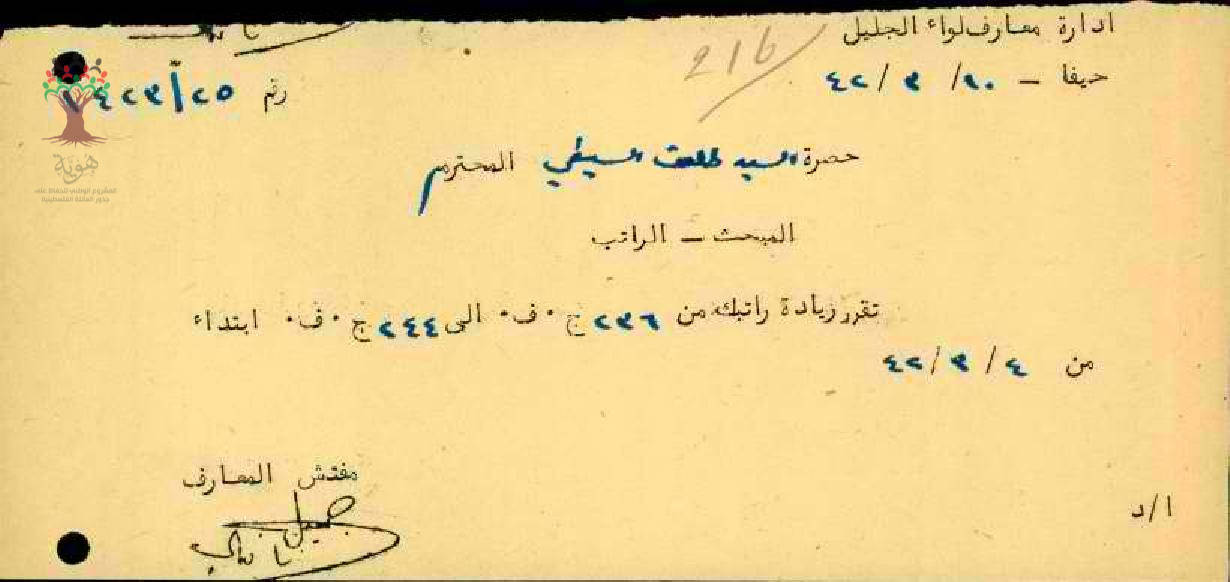 ادارة معارف لواء الجليل
216
حيفا – ٣٠/ ٣ /٤٢
رقم ٢٥/أ/٤٢٣
هُويّة
المشروع الوطني للحفاظ على
جذور العائلة الفلسطينية
حضرة السيد طلعت السيفي المحترم
المبحث – الراتب
تقرر زيادة راتبك من ٢٣٦ ج ٠ ف٠ الى ٢٤٤ ج ٠ ف٠ ابتداء
من ٤ / ٣ / ٤٢
مفتش المعارف
جميل
ا/د